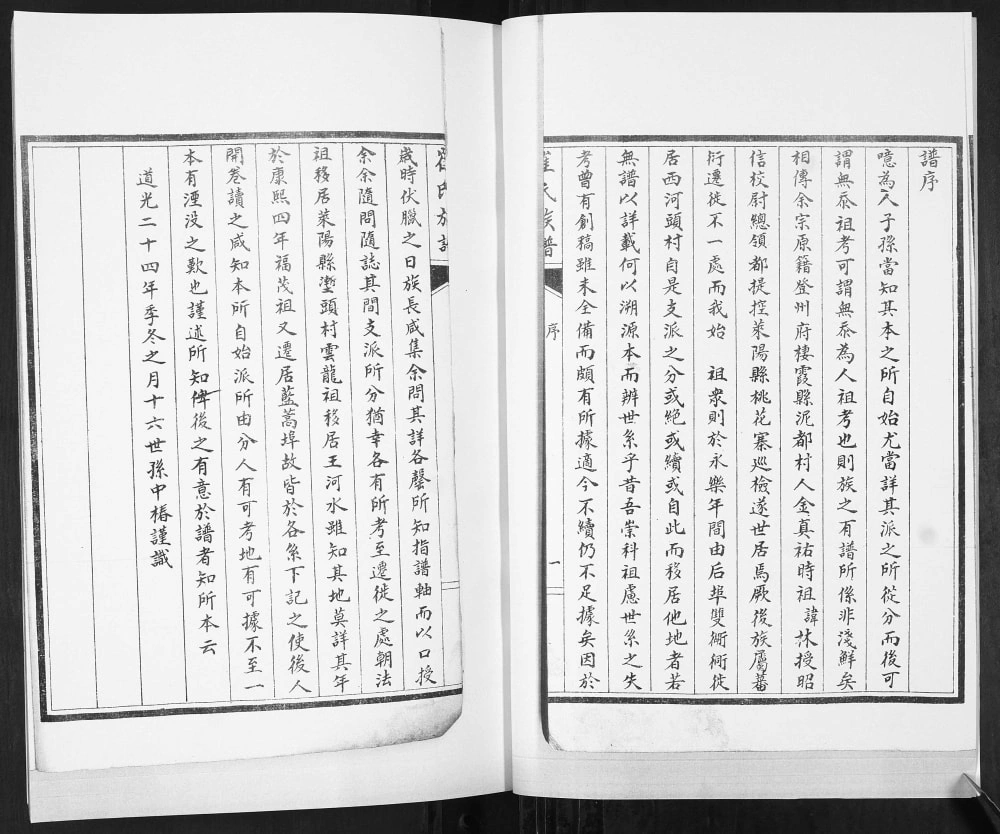 譜序
噫為人子孫當知其本之所自始尤當詳其派之所從分而後可
謂無忝祖考可謂無忝為人祖考也則族之有譜所係非淺鮮矣
相傳余宗原籍登州府棲霞縣泥都村人金真祐時祖諱林授昭
信校尉總領都提控萊陽縣桃花寨巡檢遂世居焉厥後族屬蕃
衍遷徙不一處而我始 祖衆則於永樂年間由后埠雙衕衕徙
居西河頭村自是支派之分或絕或續或自此而移居他地者若
無譜以詳載何以溯源本而辨世系乎昔吾崇科祖慮世系之失
考曾有創稿雖未全備而頗有所據適今不續仍不足據矣因於
氏族譜
序
一
歲時伏臘之日族長咸集余問其詳各罄所知指譜軸而以口授
余余隨問隨誌其間支派所分猶幸各有所考至遷徙之處朝法
祖移居萊陽縣瀣頭村雲龍祖移居王河水雖知其地莫詳其年
於康熙四年福茂祖又遷居藍蒿埠故皆於各系下記之使後人
開卷讀之咸知本所自始派所由分人有可考地有可據不至一
本有湮没之歎也謹述所知俾後之有意於譜者知所本云
道光二十四年季冬之月十六世孫中椿謹識